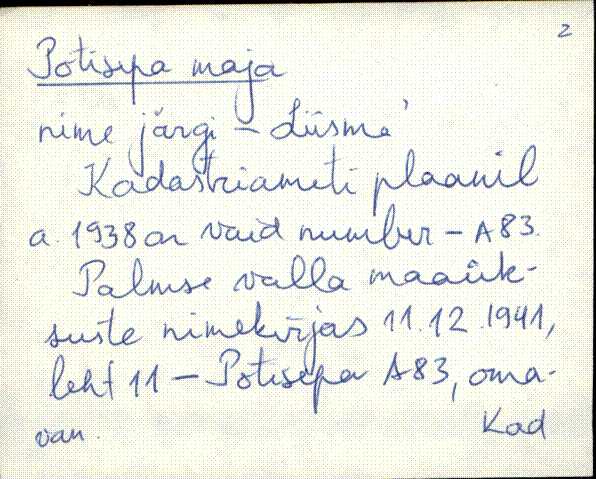 2
Potisepa maja
nime järgi – Liisma'
Kadastriameti plaanil
a. 1938 on vaid number – A83.
Palmse valla maaük-
suste nimekirjas 11.12.1941,
leht 11 – Potisepa A83, oma-
van. Kad